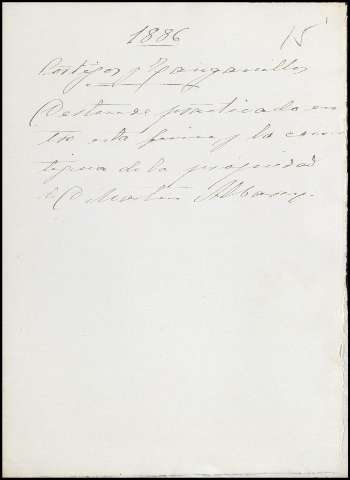 1886
15
Cortijos y Zanganillos
Deslinde practicado en
tre esta finca y la con
tigua de la propiedad
de D. Martin